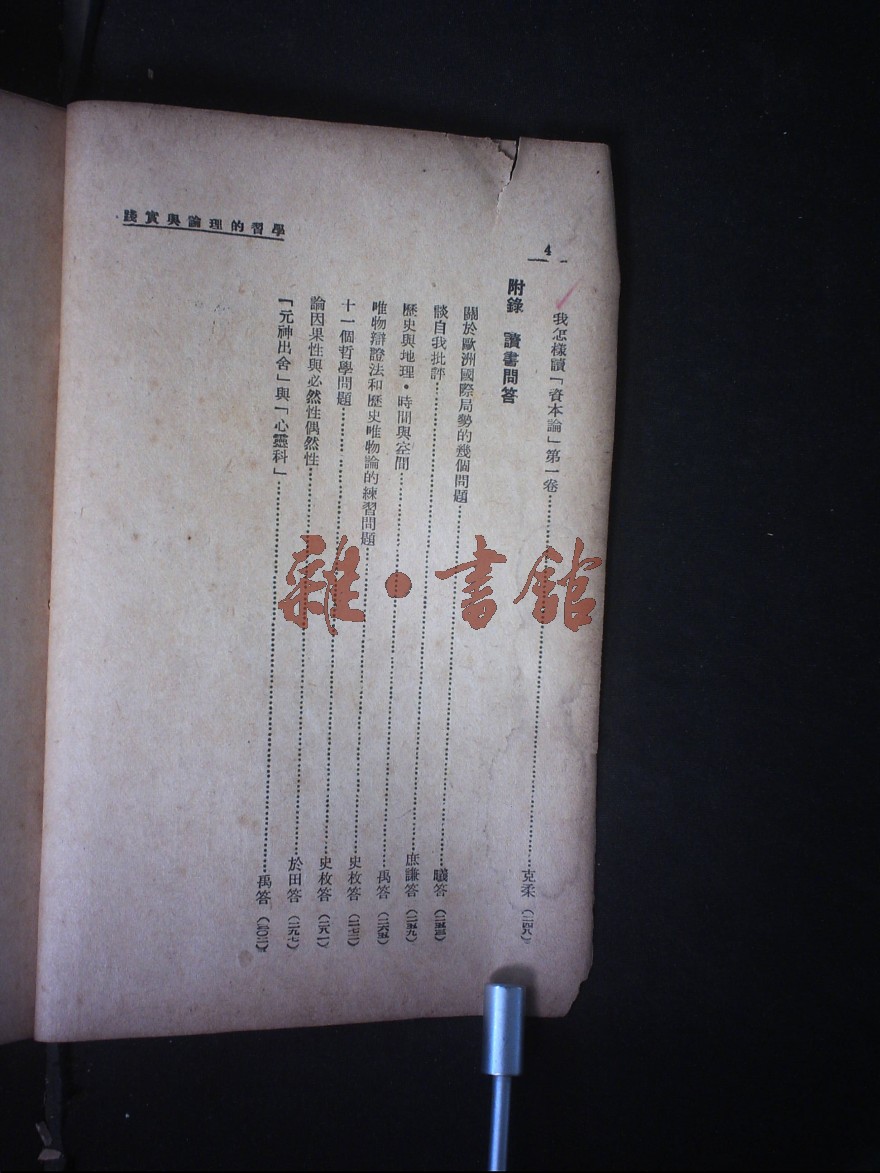 學習的理論與實踐
4
我怎樣讀「資本論」第一卷……克柔（二四八）
附錄 讀書問答
關於歐洲國際局勢的幾個問題……曦答（二五三）
談自我批評……庶謙答（二五九）
歷史與地理・時間與空間……禹答（二六五）
唯物辯證法和歷史唯物論的練習問題……史枚答（二七二）
十一個哲學問題……史枚答（二八一）
論因果性與必然性偶然性……於田答（二九七）
「元神出舍」與「心靈科」……禹答
雜・書館